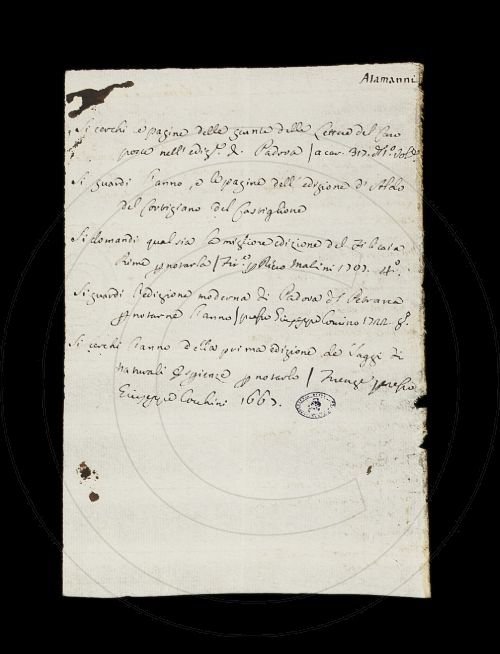 Alamanni
Si cerchi e pagine delle giunte delle Lettere del Caro
poste nell'ediz. di Padova / a car. 317. del Vol.
Si guardi l'anno, e le pagine dell'edizione d'Aldo
del Cortigiano del Castiglione
Si domandi qual sia la migliore edizione del Filicaia
Rime notarla / Fir. Matini 1707. 4º.
Si guardi l'edizione moderna di Padova del Petrarca
notarne l'anno / presso Giuseppe Comino 1722. 8.
Si cerchi l'anno della prima edizione de Saggi di
Naturali Esperienze notarlo / Firenze presso
Giuseppe Cocchini 1667.